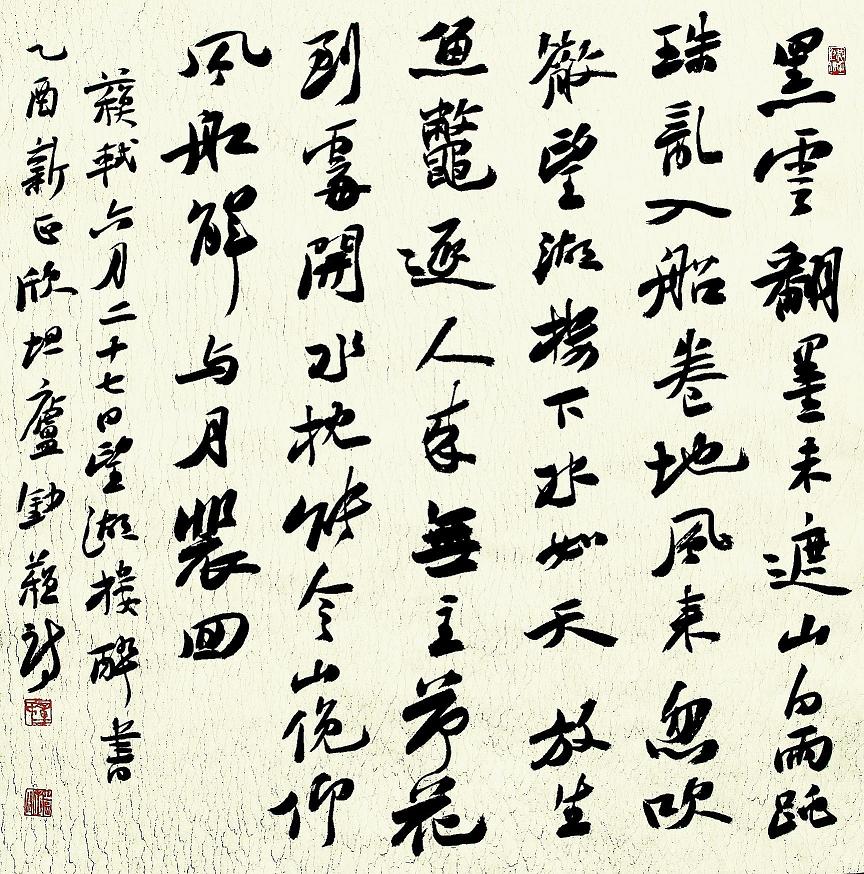 黑雲翻墨未遮山白雨跳
珠亂入船卷地風来忽吹
散望湖樓下水如天放生
魚鼈逐人来無主荷花
到處開水枕能令山俛仰
風船解与月裴回
蘇軾六月二十七日望湖樓醉書
乙酉新正坦廬蘇詩